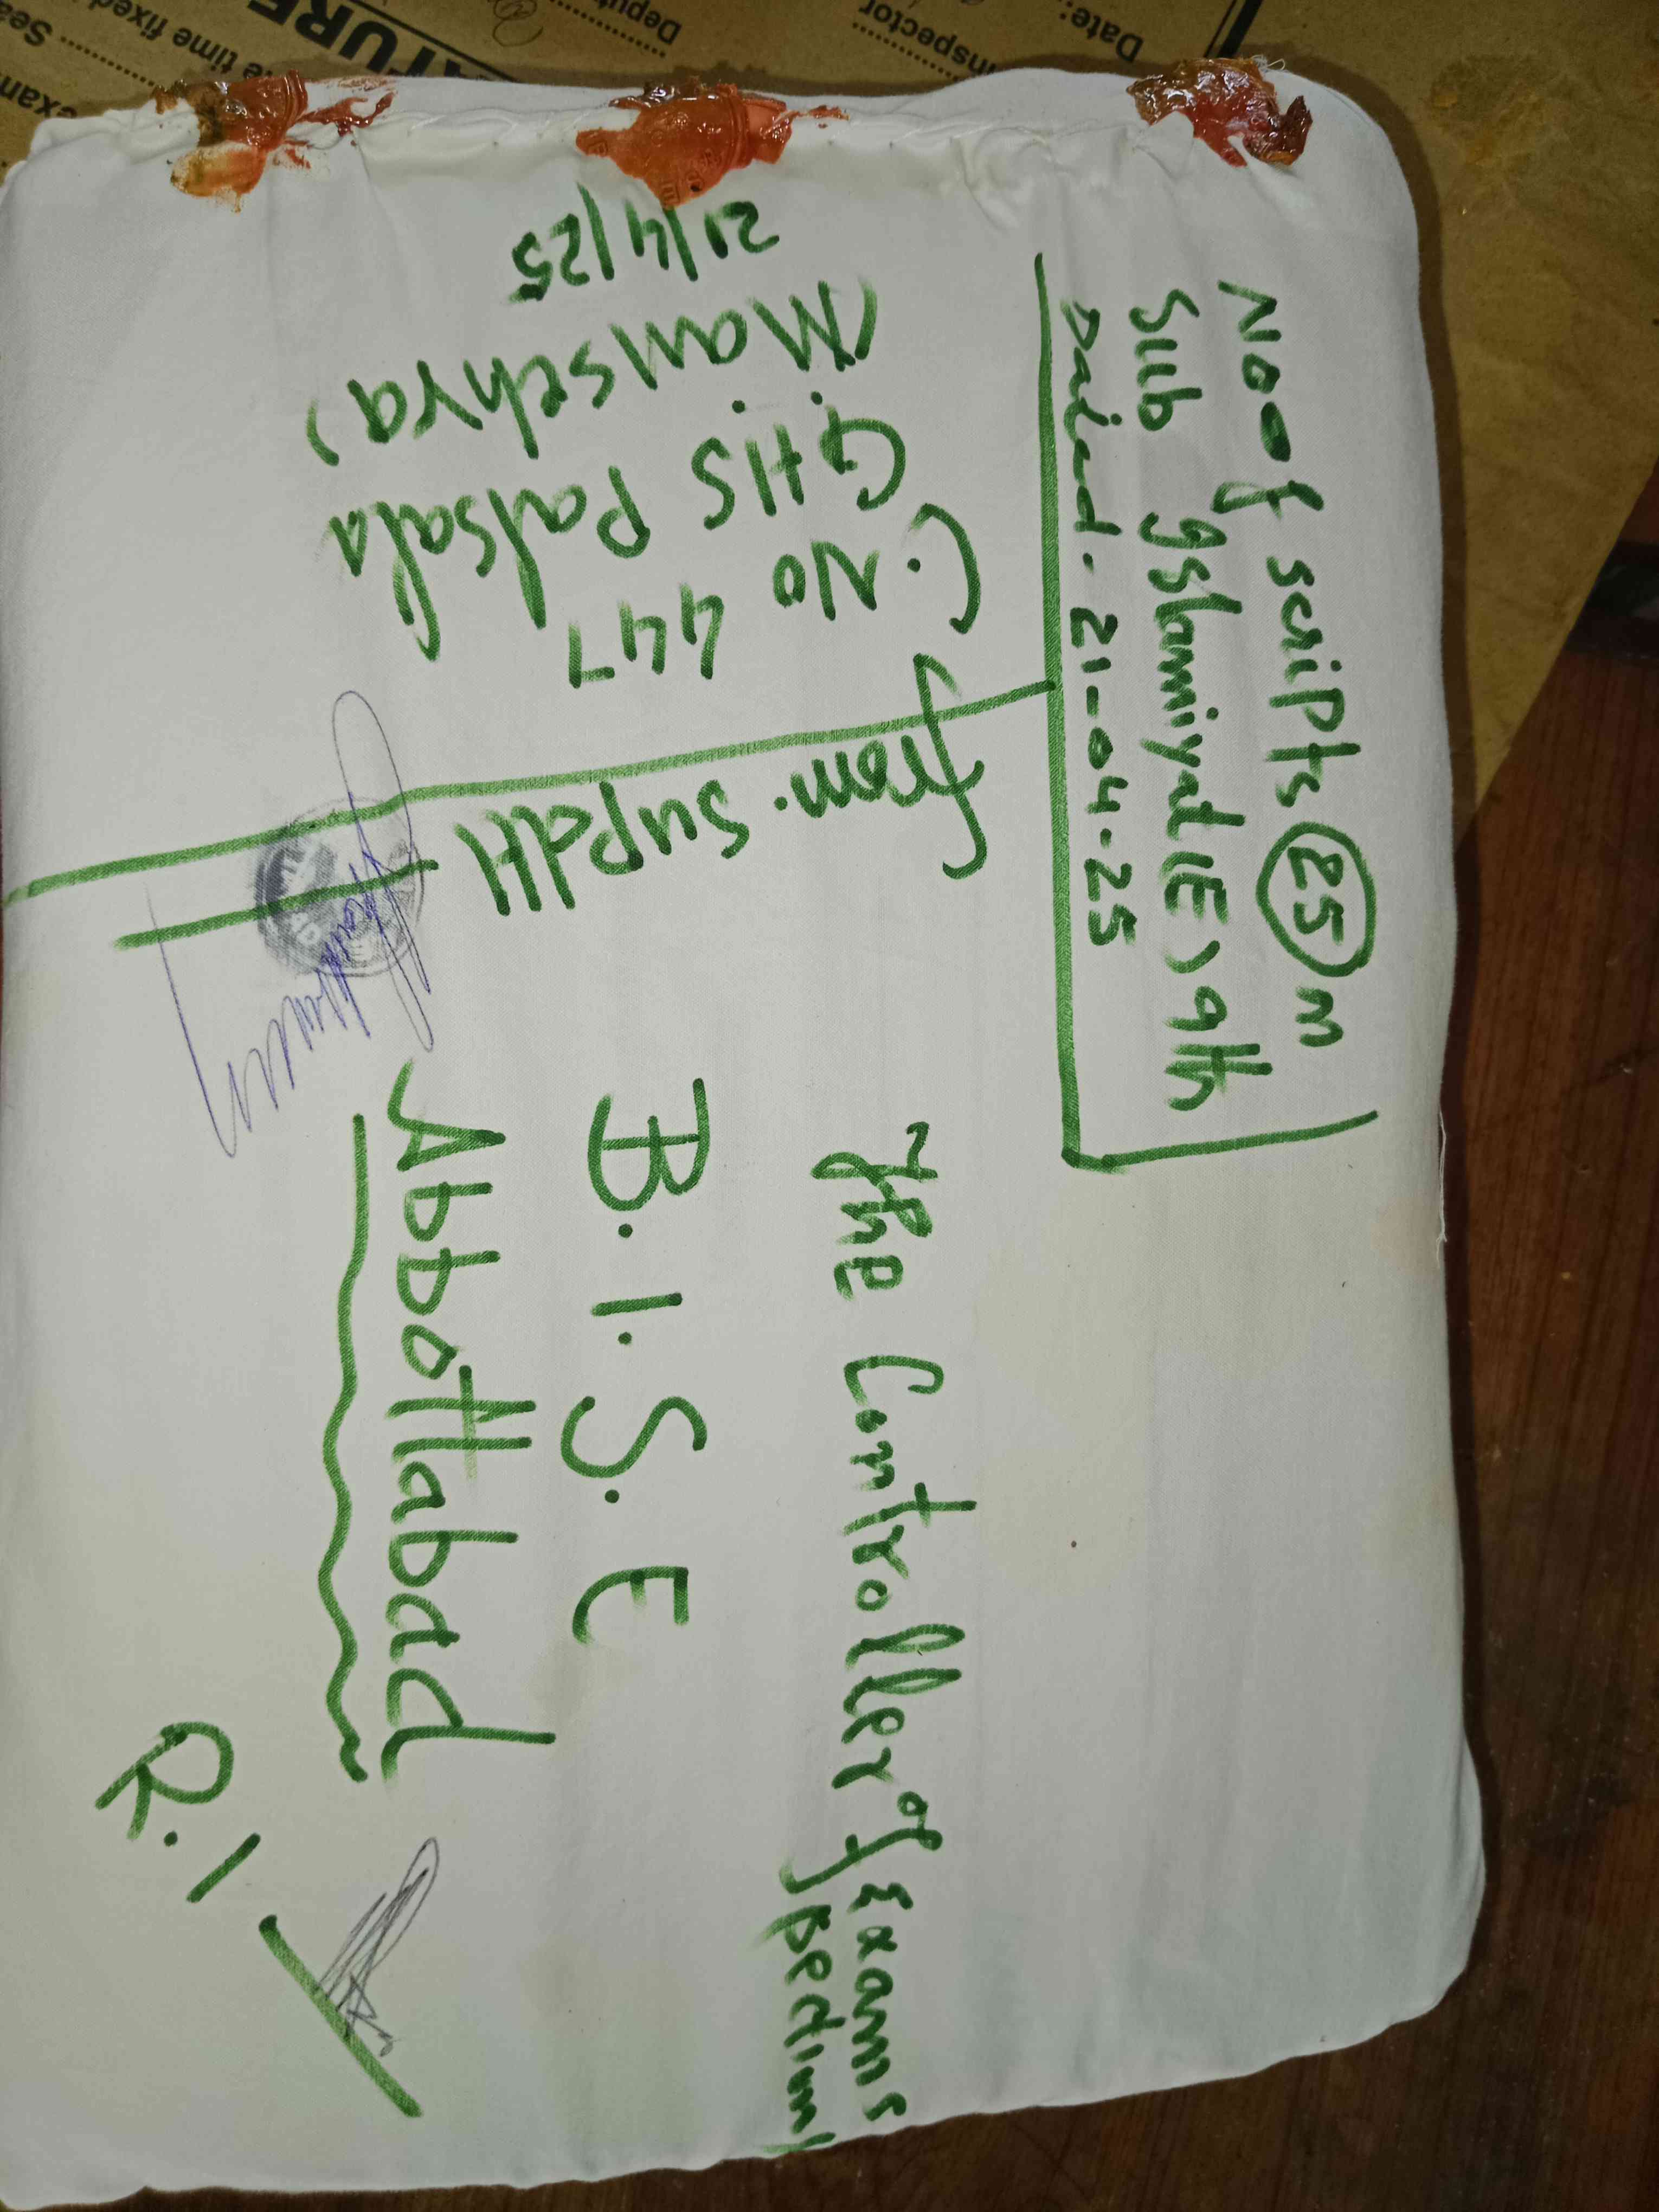 No of scripts 25 m
Sub Islamiyat (E) 9th
Dated. 21-04-25
The Controller of Exams
B.I.S.E
Abbottabad
R.1
from. Supdtt
C.No 447
GHS Patsala
Mansehra)
21/4/25
Date:
inspector
Deput
ATURE
e time fixed
Sea
exam